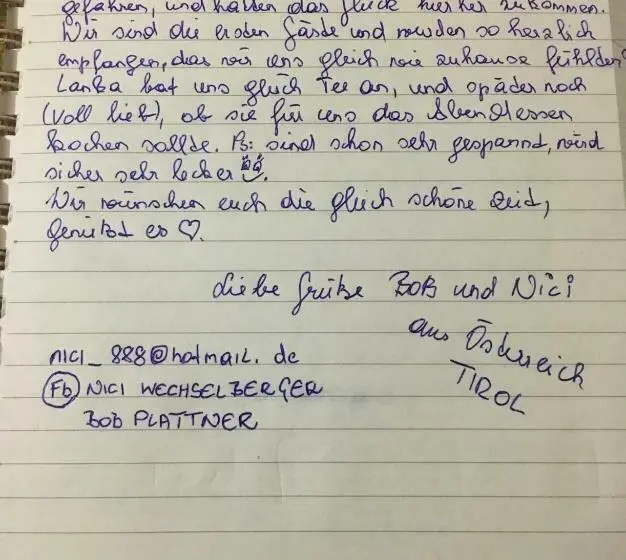 gefahren, und hatten das Glück hierher zukommen.
Wir sind die ersten Gäste und wurden so herzlich
empfangen, das wir uns gleich wie zuhause fühlden
Lanka bat uns gleich Tee an, und später noch
(voll lieb), ob sie für uns das Abendessen
kochen sollte. Ps: sind schon sehr gespannt, wird
sicher sehr lecker
Wir wünschen euch die gleich schöne Zeit,
genießt es ♡.
Liebe Grüße Bob und Nici
aus Österreich
TIROL
nici_888@hotmail.de
Fb NICI WECHSELBERGER
BOB PLATTNER